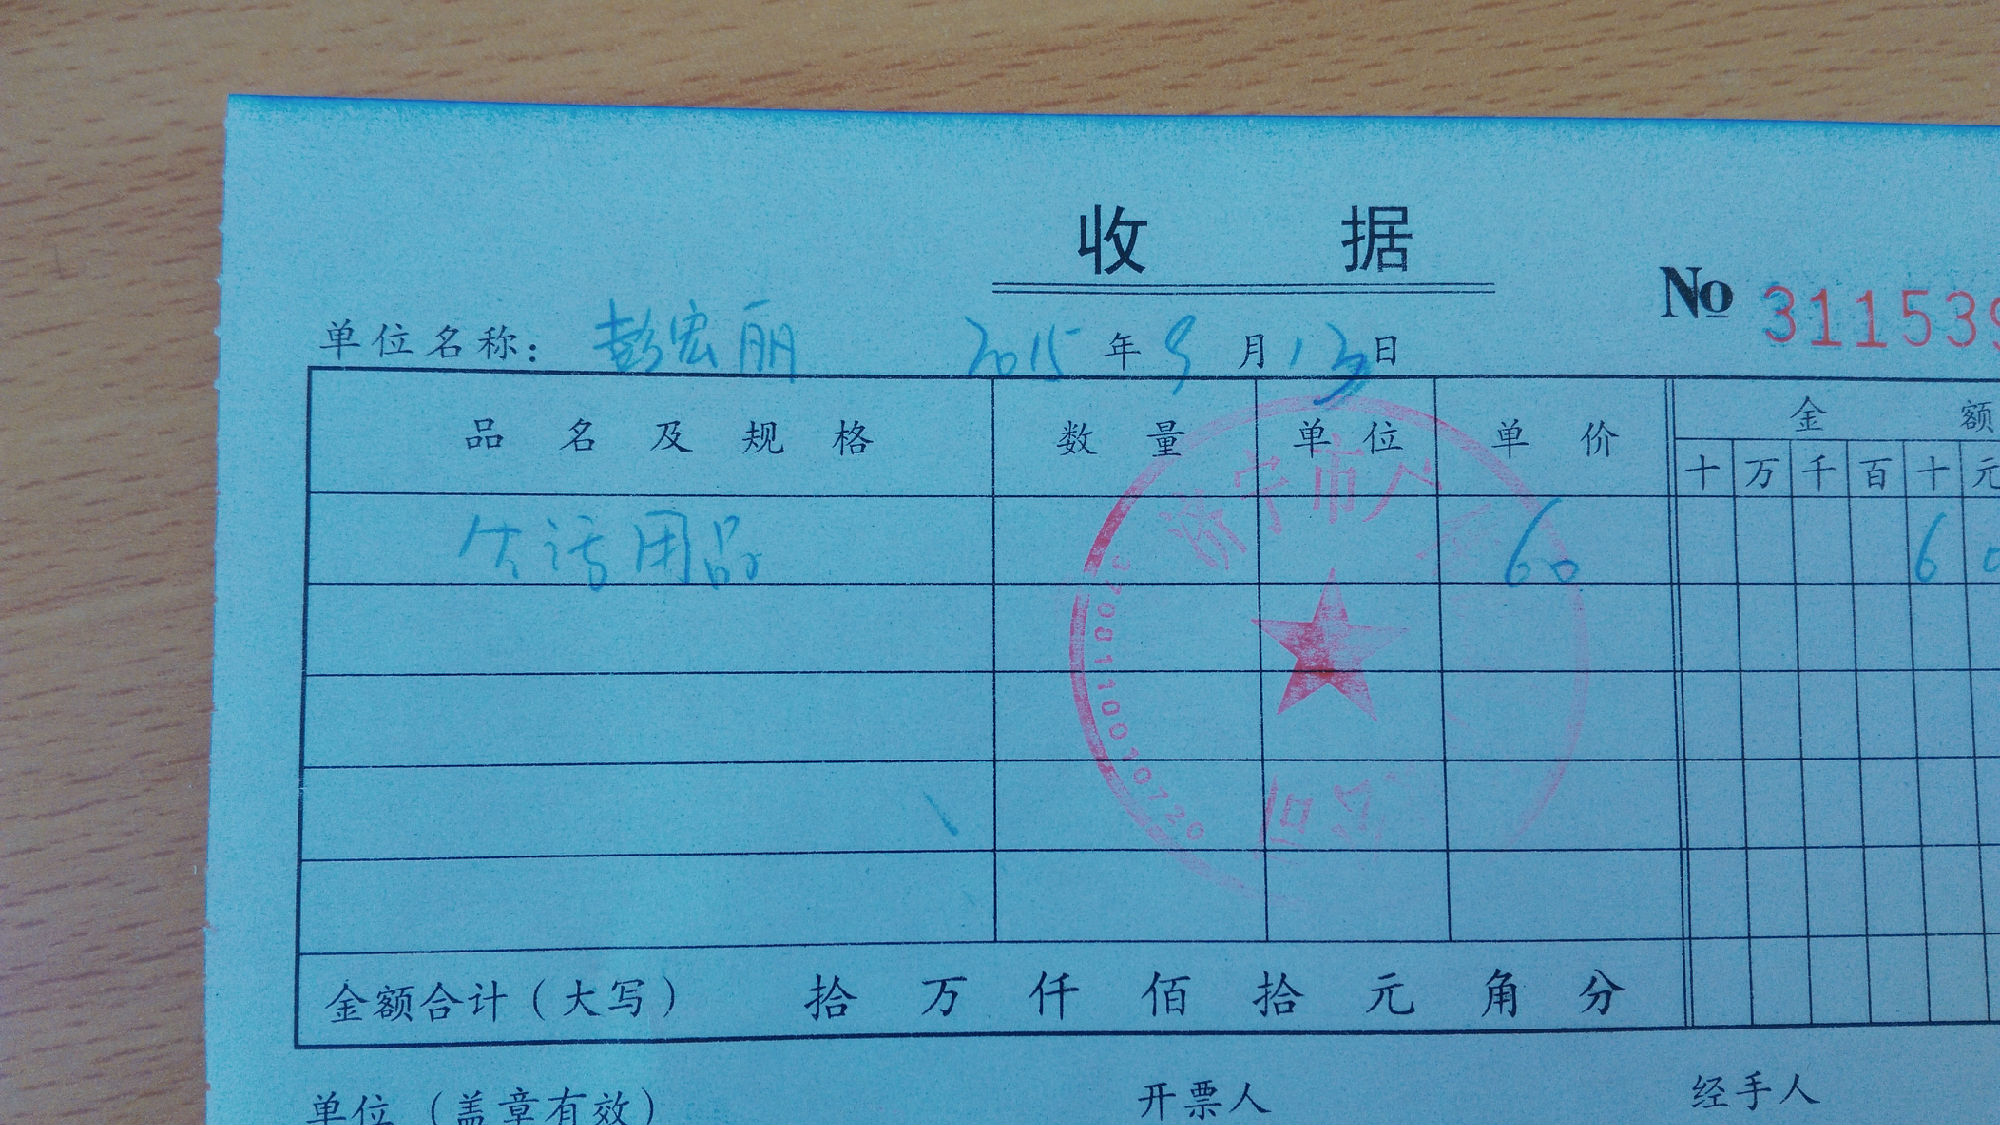 收 据
No 311539
单位名称: 彭宏丽 2015 年 9 月 13 日
品名及规格 数量 单位 单价 金额
十 万 千 百 十 元
生活用品 60 6 0
济宁市广
3708110010720
金额合计(大写) 拾 万 仟 佰 拾 元 角 分
单位(盖章有效) 开票人 经手人